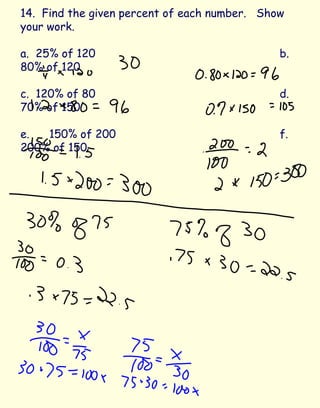 14. Find the given percent of each number. Show
your work.
a. 25% of 120 b.
80% of 120
1/4 × 120 30 0.80×120=96
c. 120% of 80 d.
70% of 150
1.2 × 80 = 96 0.7 × 150 = 105
e. 150% of 200 f.
200% of 150
150/100 = 1.5 200/100 = 2
1.5 × 200 = 300 2 × 150 = 300
30% of 75 75% of 30
30/100 = 0.3 .75 × 30 = 22.5
.3 × 75 = 22.5
30/100 = x/75 75/100 = x/30
30·75 = 100x 75·30 = 100x